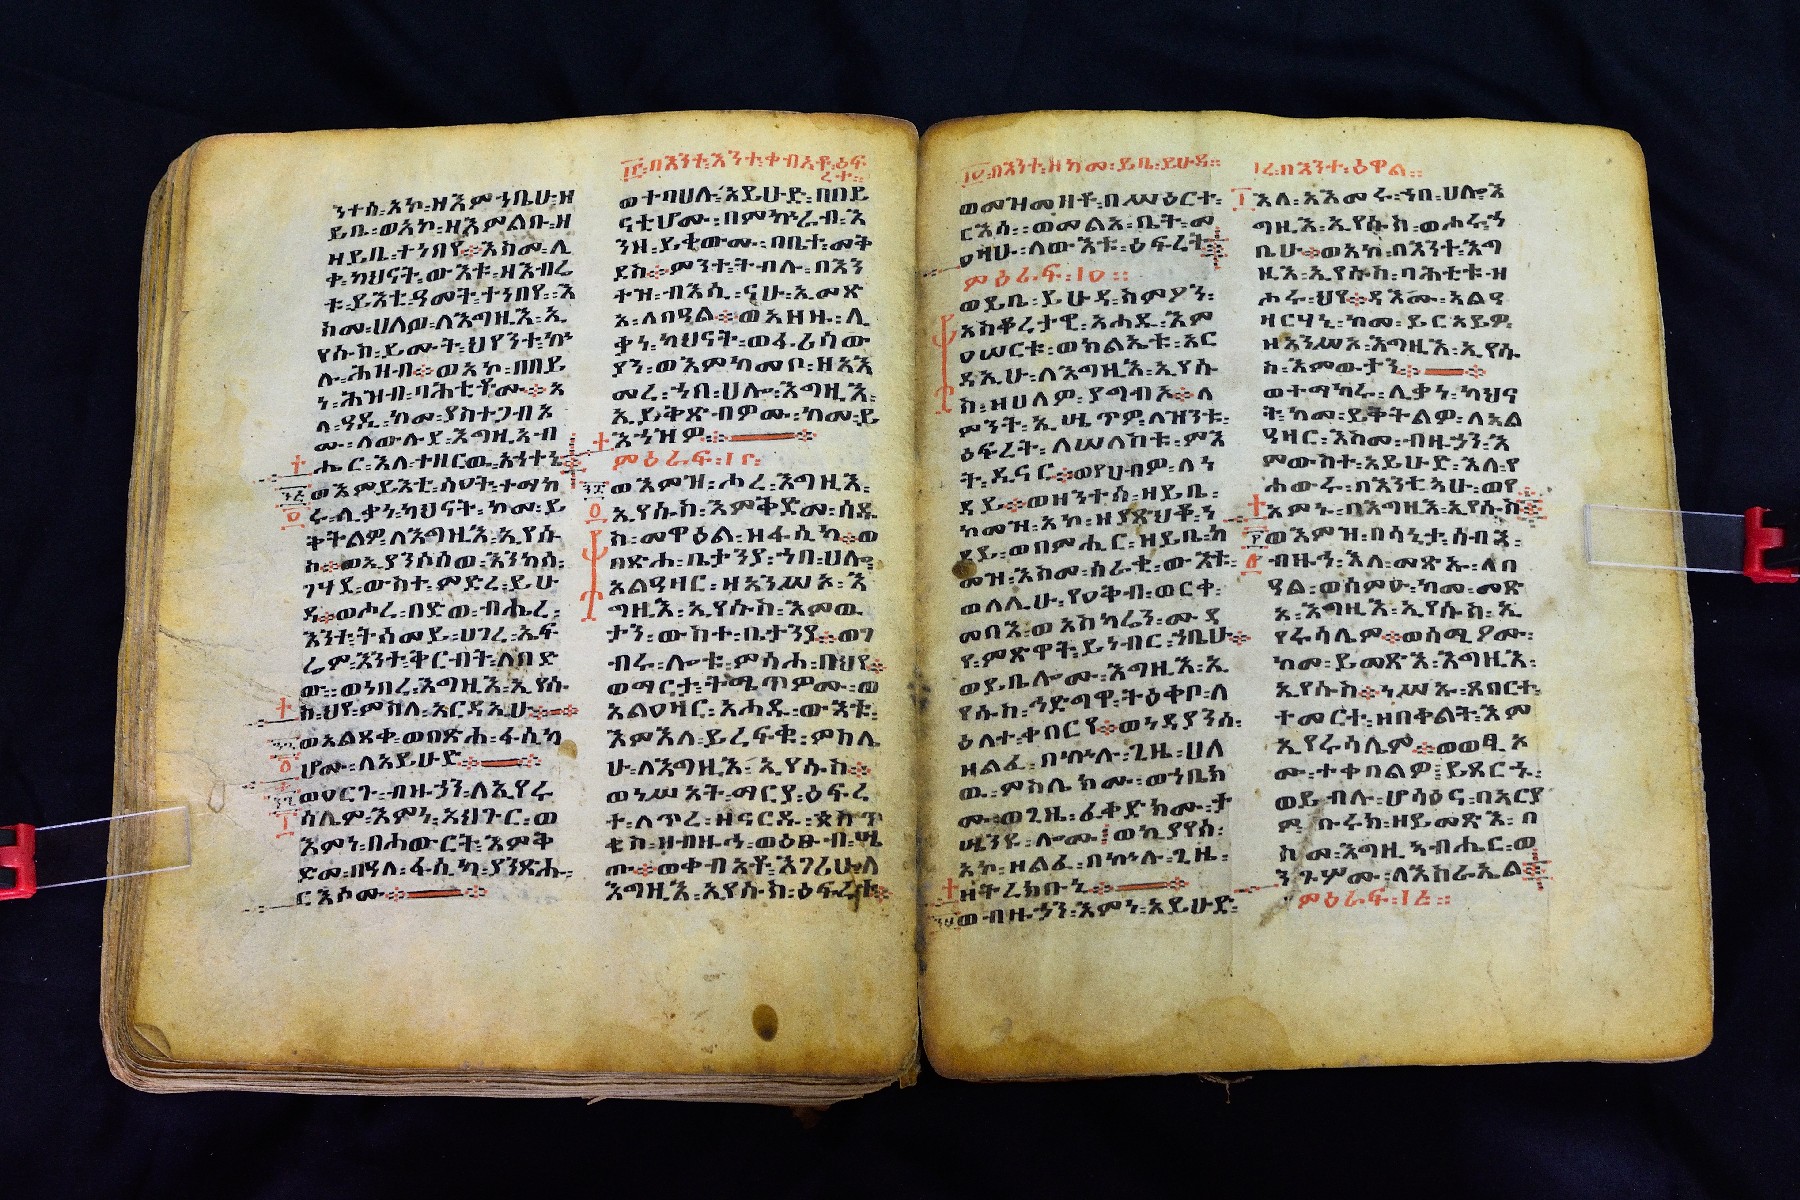 ንተሰ፡አኮ፡ዘእምኀቤሁ፡ዘ
ይቤ፡ወአኮ፡ዘእምልቡ፡ዘ
ዘይቤ፡ተነበየ፨እስመ፡ሊ
ቀ፡ካህናት፡ውእቱ፡ዘእብሬ
ቱ፡ይእቲ፡ዓመት፡ተነበየ፡እ
ስመ፡ሀለወ፡ለእግዚእ፡ኢ
የሱስ፡ይሙት፡ህየንተ፡ኵ
ሉ፡ሕዝብ፨ወአኮ፡በበይ
ነ፡ሕዝብ፡ባሕቲቶሙ፨አ
ላ፡ዓዲ፡ከመ፡ያስተጋብኦ
ሙ፡ለውሉደ፡እግዚአብ
ሔር፡እለ፡ተዘርዉ፡
ወእምይእቲ፡ዕለት፡ተማከ
ሩ፡ሊቃነ፡ካህናት፡ከመ፡ይ
ቅትልዎ፡ለእግዚእ፡ኢየሱ
ስ፨ወኢያንሶሰወ፡እንከሰ፡
ገሃደ፡ውስተ፡ምድረ፡ይሁ
ዳ፨ወሖረ፡በድወ፡ብሔረ፡
እንተ፡ትሰመይ፡ሀገረ፡ኤፍ
ሬም፡እንተ፡ቅርብት፡ለበድ
ው፡፡ወነበረ፡እግዚእ፡ኢየሱ
ስ፡ህየ፡ምስለ፡አርዳኢሁ፨
ወአልጸቀ፡ወበጽሐ፡ፋሲካ
ሆሙ፡ለአይሁድ፨
ወዐርጉ፡ብዙኃን፡ለኢየሩ
ሳሌም፡እምነ፡አህጉር፡ወ
እምነ፡በሐውርት፡እምቅ
ድመ፡በዓለ፡ፋሲካ፡ያንጽሑ፡
ርእሶሙ፨
፲፫፡በእንተ፡እንተ፡ቀብአቶ፡ዕፍ
ረተ፡፡
ወተባሀሉ፡አይሁድ፡በበይ
ናቲሆሙ፡በምኵራብ፡እ
ንዘ፡ይቀውሙ፡በቤተ፡መቅ
ደስ፨ምንተ፡ትብሉ፡በእን
ተዝ፡ብእሲ፡ናሁ፡ኢመጽ
አ፡ለበዓል፨ወአዘዙ፡ሊ
ቃነ፡ካህናት፡ወፈሪሳው
ያን፡ወእምከመቦ፡ዘአእ
መረ፡ኀበ፡ሀሎ፡እግዚእ፡
ኢይቅጽብዎሙ፡ከመ፡ይ
አኀዝዎ፨
ምዕራፍ፡፲፫፡
ወእምዝ፡ሖረ፡እግዚእ፡
ኢየሱስ፡እምቅድመ፡ሰዱ
ስ፡መዋዕል፡ዘፋሲካ፨ወ
በጽሐ፡ቢታንያ፡ኀበ፡ሀሎ፡
አልዓዛር፡ዘአንሥኦ፡እ
ግዚእ፡ኢየሱስ፡እምዉ
ታን፡ውስተ፡ቢታንያ፨ወገ
ብሩ፡ሎቱ፡ምሳሐ፡በህየ፨
ወማርታ፡ትሜጥዎሙ፡ወ
አልዐዛር፡አሐዱ፡ውእቱ፡
እምእለ፡ይረፍቁ፡ምስሌ
ሁ፡ለእግዚእ፡ኢየሱስ፨
ወነሥአት፡ማርያ፡ዕፍረ
ተ፡ለጥረ፡ዘናርዱ፡ጰስጥ
ቂስ፡ዘብዙኅ፡ወዕፁብ፡ሤ
ጡ፨ወቀብአቶ፡እገሪሁ፡ለ
እግዚእ፡ኢየሱስ፡ዕፍረተ፨
፲፬፡በእንተ፡ዘከመ፡ይቤ፡ይሁዳ፡፡
ወመዝመዘቶ፡በሥዕርተ፡
ርእሳ፡፡ወመልአ፡ቤተ፡መ
ዐዛሁ፡ለውእቱ፡ዕፍረት፨
ምዕራፍ፡፲፬፡፡
ወይቤ፡ይሁዳ፡ስምዖን፡
አስቆሮታዊ፡አሐዱ፡እም
ዐሠርቱ፡ወክልኤቱ፡አር
ዳኢሁ፡ለእግዚእ፡ኢየሱ
ስ፡ዘሀለዎ፡ያግብኦ፨ለ
ምንት፡ኢሤጥዎ፡ለዝንቱ፡
ዕፍረት፡ለሠለስቱ፡ምእ
ት፡ዲናር፨ወየሀብዎ፡ለነ
ዳይ፨ወዘንተሰ፡ዘይቤ፡
ከመዝ፡አኮ፡ዘያጽህቆ፡ነ
ዳይ፡ወበምሒር፡ዘይቤ፡ከ
መዝ፡እስመ፡ሰራቂ፡ውእቱ፡
ወለሊሁ፡የዐቅብ፡ወርቀ፡
መባእ፡ወአስካሬን፡ሙዳ
የ፡ምጽዋት፡ይነብር፡ኀቤሁ፨
ወይቤሎሙ፡እግዚእ፡ኢ
የሱስ፡ኅድግዋ፡ትዕቀቦ፡ለ
ዕለተ፡ቀበርየ፨ወነዳያንሰ፡
ዘልፈ፡በኵሉ፡ጊዜ፡ሀለ
ዉ፡ምስሌክሙ፡ወኀቤክ
ሙ፡ወጊዜ፡ፈቀድክሙ፡ት
ሤንዩ፡ሎሙ፡ወኪያየሰ፡
አኮ፡ዘልፈ፡በኵሉ፡ጊዜ፡
ዘትረክቡኒ፨
ወብዙኃን፡እምነ፡አይሁድ፡
፲፭በእንተ፡ዕዋል፡፡
እለ፡አእመሩ፡ኀበ፡ሀሎ፡እ
ግዚእ፡ኢየሱስ፡ወሖሩ፡ኀ
ቤሁ፨ወአኮ፡በእንተ፡እግ
ዚእ፡ኢየሱስ፡ባሕቲቱ፡ዘ
ሖሩ፡ህየ፨ዳእሙ፡አልዓ
ዛርሃኒ፡ከመ፡ይርአይዎ
ዘአንሥኦ፡እግዚእ፡ኢየሱ
ስ፡እምውታን፨
ወተማከሩ፡ሊቃነ፡ካህና
ት፡ከመ፡ይቅትልዎ፡ለአል
ዓዛር፡እስመ፡ብዙኃን፡እ
ምውስተ፡አይሁድ፡እለ፡የ
ሐውሩ፡በእንቲኣሁ፡ወየ
አምኑ፡በእግዚእ፡ኢየሱስ፨
ወእምዝ፡በሳኒታ፡ሰብእ፡
ብዙኅ፡እለ፡መጽኡ፡ለበ
ዓል፡ወሰምዑ፡ከመ፡መጽ
አ፡እግዚእ፡ኢየሱስ፡ኢ
የሩሳሌም፨ወሰሚዖሙ፡
ከመ፡ይመጽእ፡እግዚእ፡
ኢየሱስ፨ነሥኡ፡ጸበርተ፡
ተመርተ፡ዘበቀልት፡እም
ኢየሩሳሌም፨ወወፂኦ
ሙ፡ተቀበልዎ፡ይጸርኁ፡
ወይብሉ፡ሆሳዕና፡በአርያ
ም፡ቡሩክ፡ዘይመጽእ፡በ
ስመ፡እግዚኣብሔር፡ወ
ንጉሦሙ፡ለእስራኤል፨
ምዕራፍ፡፲፭፡፡